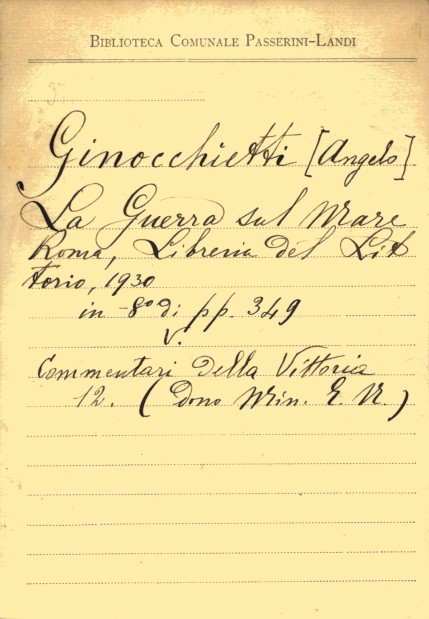 BIBLIOTECA COMUNALE PASSERINI-LANDI
Ginocchietti [Angelo]
La Guerra sul Mare
Roma, Libreria del Lit
torio, 1930
in -8° di pp. 349
V.
Commentari della Vittoria
12. (Dono Min. E. N.)